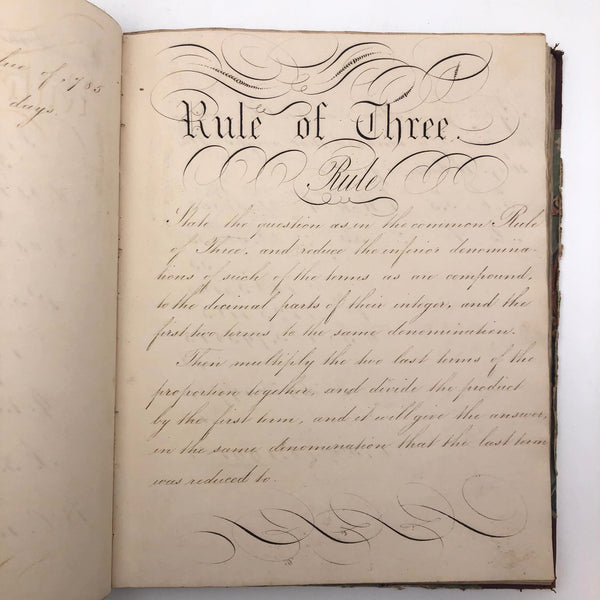 of .785
days.
Rule of Three.
Rule.
State the question as in the common Rule
of Three, and reduce the inferior denomina-
tions of such of the terms as are compound,
to the decimal parts of their integer, and the
first two terms to the same denomination.
Then multiply the two last terms of the
proportion together, and divide the product
by the first term, and it will give the answer,
in the same denomination that the last term
was reduced to.